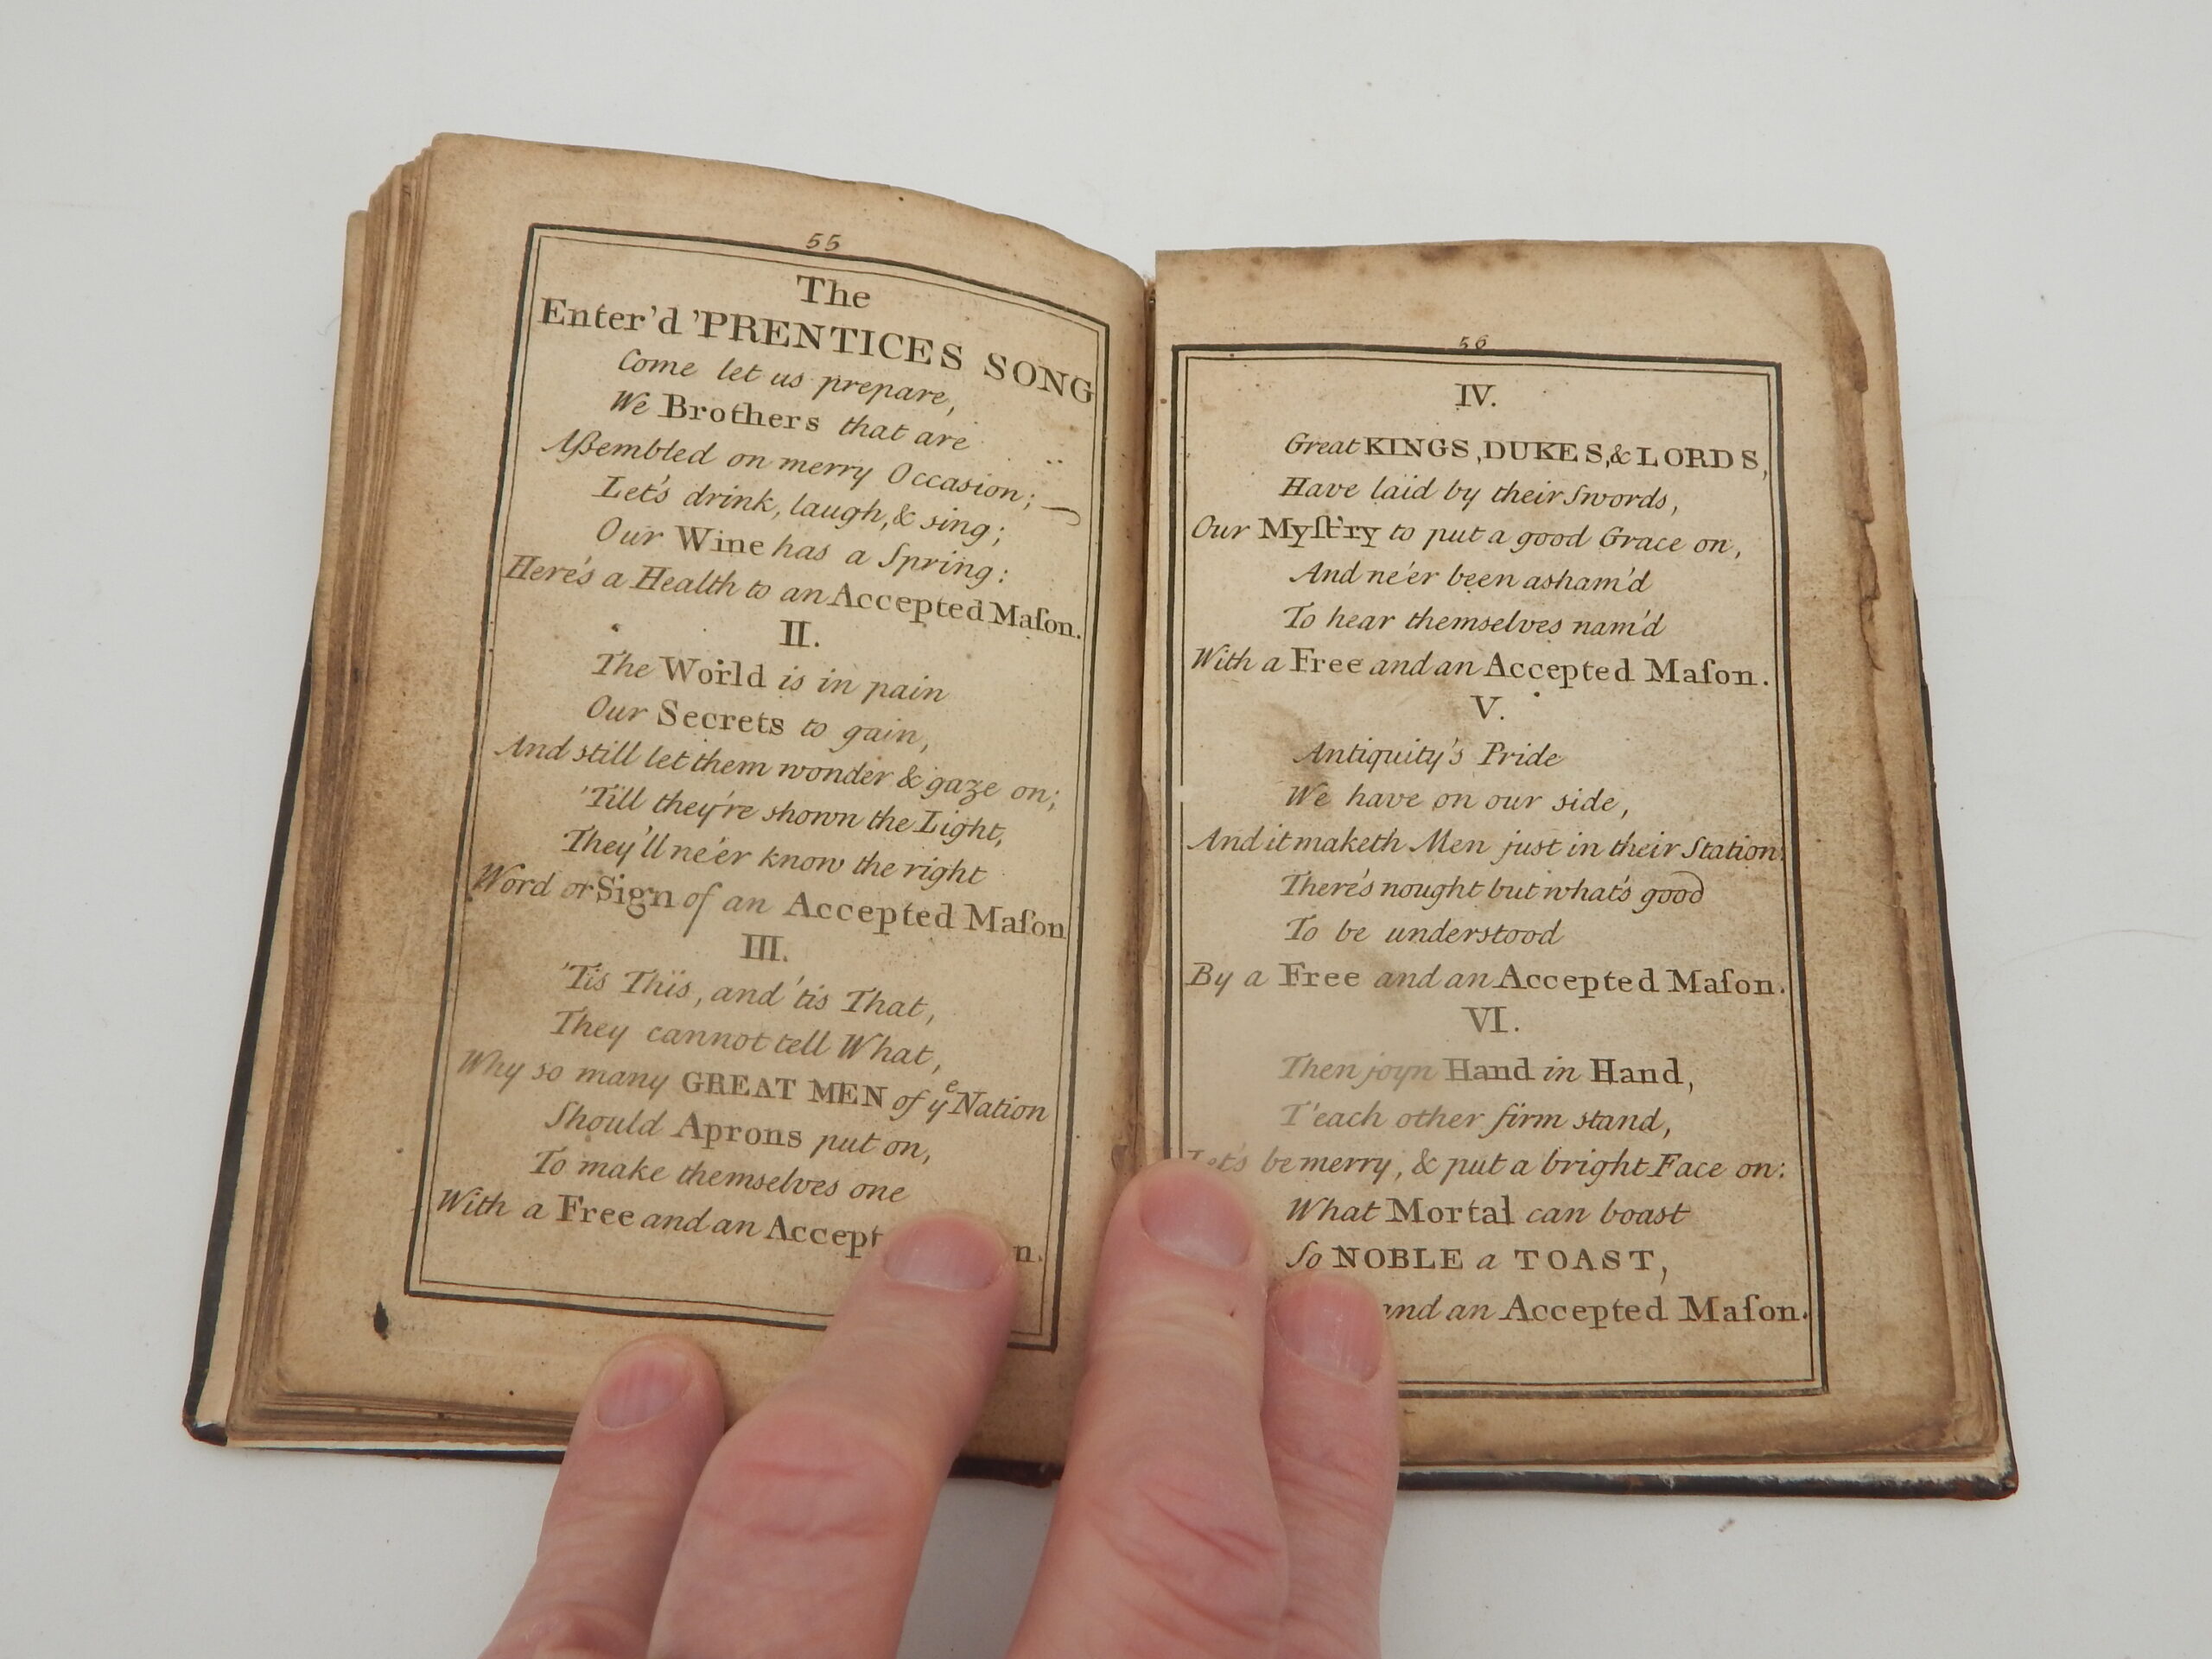 55
The
Enter'd 'PRENTICES SONG
Come let us prepare,
We Brothers that are
Aſsembled on merry Occasion;
Let's drink, laugh, & sing;
Our Wine has a Spring:
Here's a Health to an Accepted Maſon.
II.
The World is in pain
Our Secrets to gain,
And still let them wonder & gaze on;
'Till they're shown the Light,
They'll ne'er know the right
Word or Sign of an Accepted Maſon
III.
'Tis This, and 'tis That,
They cannot tell What,
Why so many GREAT MEN of yᵉ Nation
Should Aprons put on,
To make themselves one
With a Free and an Accept n.
56
IV.
Great KINGS, DUKES, & LORDS,
Have laid by their Swords,
Our Myſt'ry to put a good Grace on,
And ne'er been asham'd
To hear themselves nam'd
With a Free and an Accepted Maſon.
V.
Antiquity's Pride
We have on our side,
And it maketh Men just in their Station:
There's nought but what's good
To be understood
By a Free and an Accepted Maſon.
VI.
Then joyn Hand in Hand,
T'each other firm stand,
Let's be merry, & put a bright Face on:
What Mortal can boast
So NOBLE a TOAST,
and an Accepted Maſon.